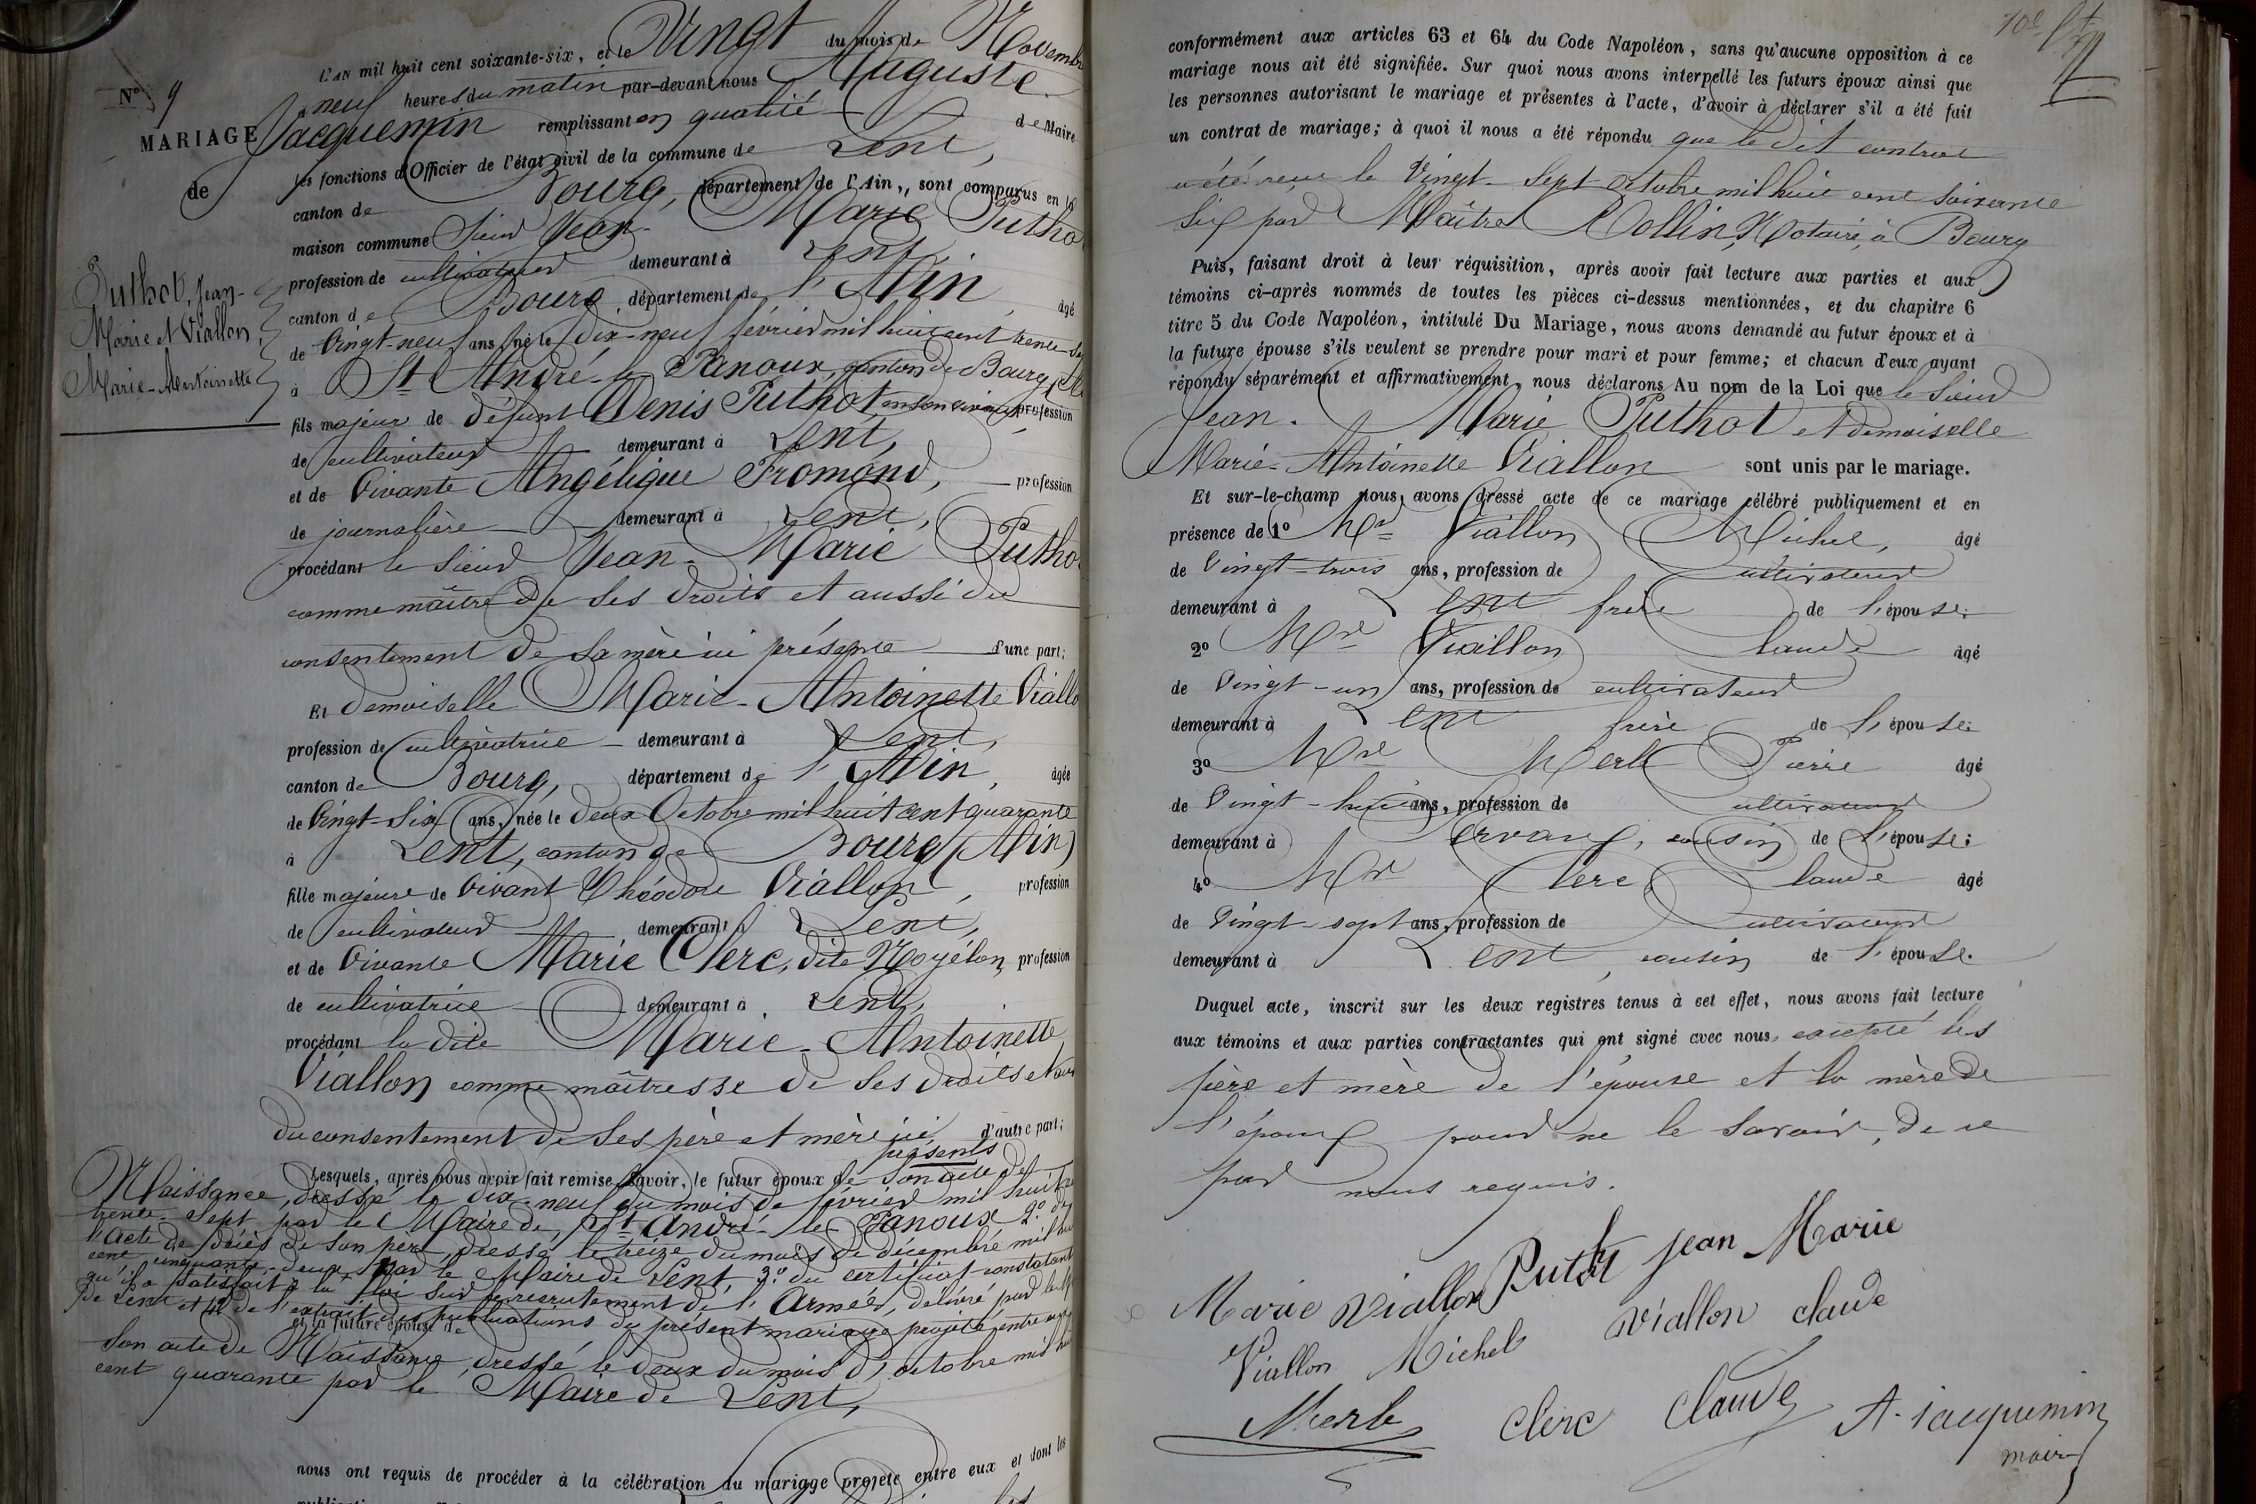 N.º 9
MARIAGE
de
Puthod, Jean-
Marie et Viallon
Marie-Antoinette
L'AN mil huit cent soixante-six, et le Vingt du mois de Novembre
à neuf heures du matin par-devant nous Auguste
Jacquemin remplissant en qualité de Maire
les fonctions d'Officier de l'état civil de la commune de Lent,
canton de Bourg, département de l'Ain, sont comparus en la
maison commune Sieur Jean-Marie Putho
profession de cultivateur demeurant à Lent,
canton de Bourg, département de l'Ain, âgé
de Vingt-neuf ans, né le dix-neuf février mil huit cent trente-se
à St André-le-Panoux, canton de Bourg (Ai
fils majeur de défunt Denis Puthot en son vivant profession
de cultivateur demeurant à Lent,
et de Vivante Angélique Fromond, profession
de journalière demeurant à Lent,
procédant le sieur Jean-Marie Putho
comme maître de ses droits et aussi du
consentement de sa mère ici présente d'une part;
Et demoiselle Marie-Antoinette Viallo
profession de cultivatrice demeurant à Lent,
canton de Bourg, département de l'Ain, âgée
de Vingt-six ans, née le deux Octobre mil huit cent quarante
à Lent, canton de Bourg (Ain)
fille majeure de Vivant Théodore Viallon, profession
de cultivateur demeurant à Lent,
et de Vivante Marie Clerc, dite Noyélon, profession
de cultivatrice demeurant à Lent,
procédant la dite Marie-Antoinette
Viallon comme maîtresse de ses droits et aus
du consentement de ses père et mère ici présents d'autre part;
Lesquels, après nous avoir fait remise, savoir, le futur époux de son acte de
Naissance, dressé le dix-neuf du mois de février mil huit
trente-sept par le Maire de St André-le-Panoux 2.º de
l'acte de décès de son père dressé le treize du mois de décembre mil hu
cent cinquante-deux par le Maire de Lent, 3.º du certificat constatant
qu'il a satisfait à la loi sur le recrutement de l'Armée, délivré par le
de Lent et 4.º de l'extrait des publications du présent mariage projeté entre
et la future épouse de
son acte de Naissance, dressé le deux du mois d'octobre mil hu
cent quarante par le Maire de Lent,
nous ont requis de procéder à la célébration du mariage projeté entre eux et dont les
conformément aux articles 63 et 64 du Code Napoléon, sans qu'aucune opposition à ce
mariage nous ait été signifiée. Sur quoi nous avons interpellé les futurs époux ainsi que
les personnes autorisant le mariage et présentes à l'acte, d'avoir à déclarer s'il a été fait
un contrat de mariage; à quoi il nous a été répondu que le dit contrat
a été reçu le Vingt-Sept octobre mil huit cent soixante
Six par Maître Rollin, Notaire, à Bourg
Puis, faisant droit à leur réquisition, après avoir fait lecture aux parties et aux
témoins ci-après nommés de toutes les pièces ci-dessus mentionnées, et du chapitre 6
titre 5 du Code Napoléon, intitulé Du Mariage, nous avons demandé au futur époux et à
la future épouse s'ils veulent se prendre pour mari et pour femme; et chacun d'eux ayant
répondu séparément et affirmativement, nous déclarons Au nom de la Loi que le Sieur
Jean-Marie Puthot et demoiselle
Marie-Antoinette Viallon sont unis par le mariage.
Et sur-le-champ nous avons dressé acte de ce mariage célébré publiquement et en
présence de 1º Mr Viallon Michel, âgé
de Vingt-trois ans, profession de Cultivateur
demeurant à Lent frère de l'épouse;
2º Mr Viallon Claude âgé
de Vingt-un ans, profession de cultivateur
demeurant à Lent frère de l'épouse;
3º Mr Merle Pierre âgé
de Vingt-huit ans, profession de Cultivateur
demeurant à Servas, cousin de l'épouse;
4º Mr Clerc Claude âgé
de Vingt-sept ans, profession de Cultivateur
demeurant à Lent, cousin de l'épouse.
Duquel acte, inscrit sur les deux registres tenus à cet effet, nous avons fait lecture
aux témoins et aux parties contractantes qui ont signé avec nous, excepté les
père et mère de l'épouse et la mère de
l'époux pour ne le savoir, de ce
par nous requis.
Marie Viallon Puthot Jean Marie
Viallon Michel Viallon Claude
Merle Clerc Claude A. Jacquemin
maire